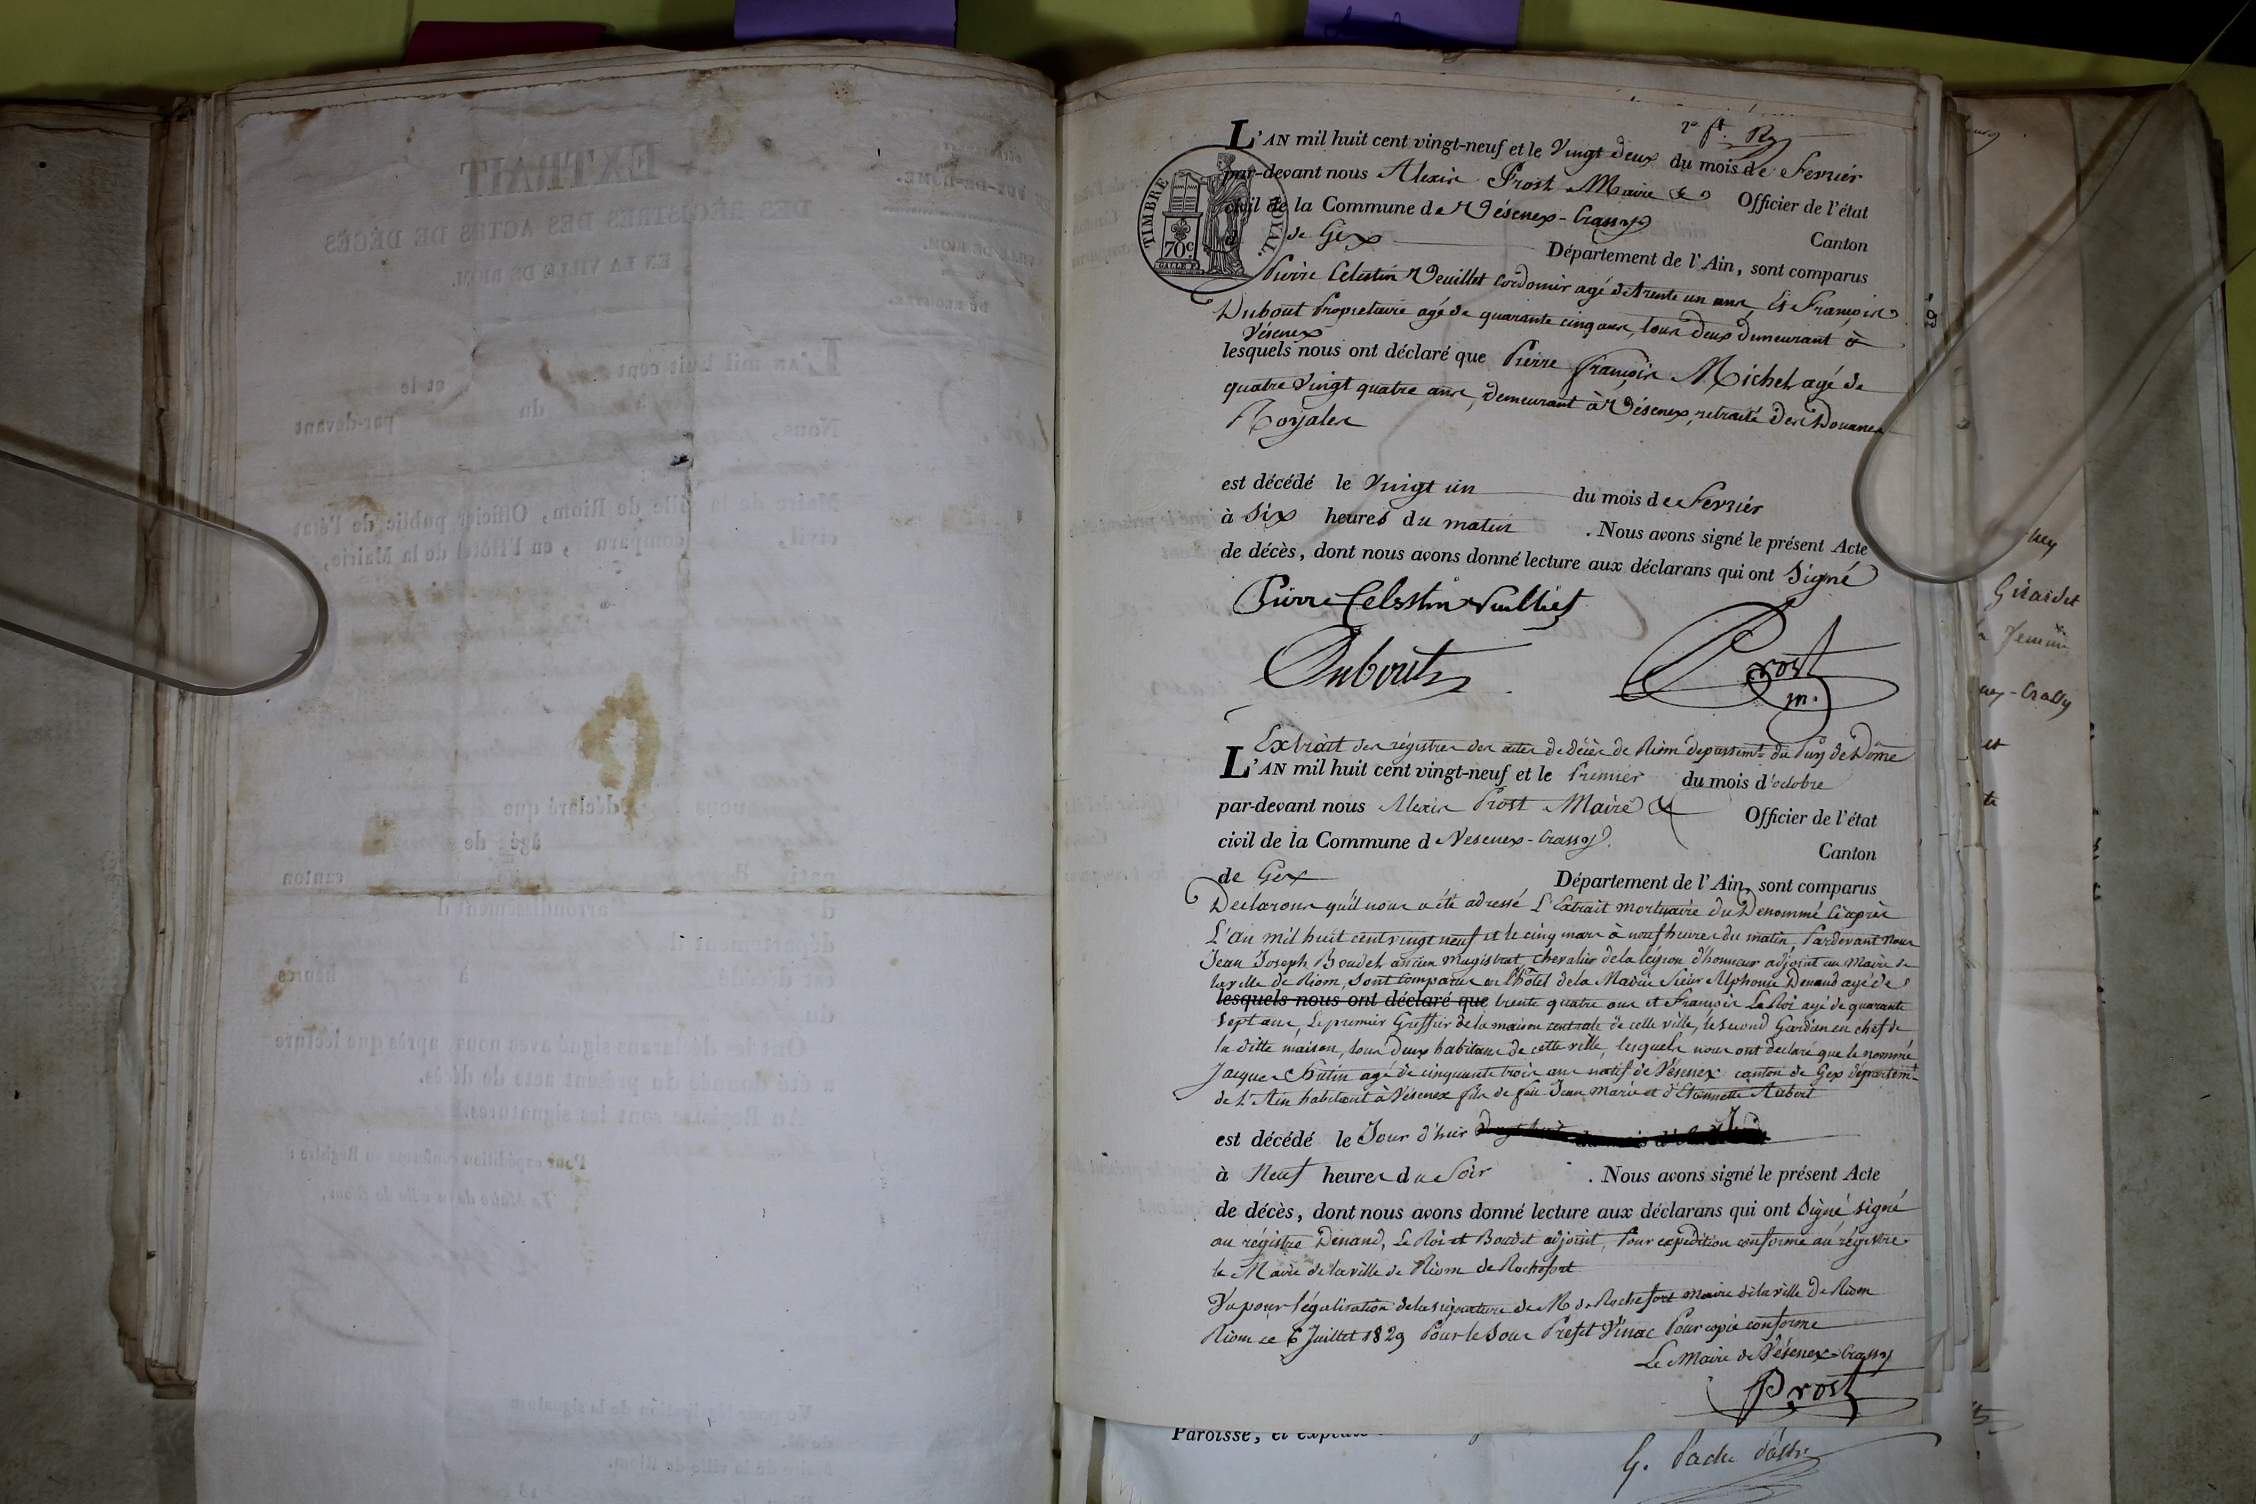 7e ft. Rg
L'AN mil huit cent vingt-neuf et le Vingt deux du mois de Fevrier
par-devant nous Alexis Prost Maire & Officier de l'état
civil de la Commune de Vésenex-Crassy Canton
de Gex Département de l'Ain, sont comparus
Pierre Celestin Veuillet Cordonier agé de trente un ans, Et François
Dubout Propriétaire agé de quarante cinq ans, tous deux demeurant à
Vésenex
lesquels nous ont déclaré que Pierre François Michel agé de
quatre Vingt quatre ans, demeurant à Vésenex, retraité des Douanes
Royales
est décédé le Vingt un du mois de Fevrier
à Six heures du matin . Nous avons signé le présent Acte
de décès, dont nous avons donné lecture aux déclarans qui ont Signé
Pierre Celestin Vuilliet
Dubout
Prost
m.
Extrait des régistres des actes de décès de Riom departemt du Puy de Dôme
L'AN mil huit cent vingt-neuf et le Premier du mois d'octobre
par-devant nous Alexis Prost Maire & Officier de l'état
civil de la Commune de Vesenex-Crassy Canton
de Gex Département de l'Ain, sont comparus
Declarons qu'il nous a été adressé L'Extrait mortuaire du Denommé ci après
L'an mil huit cent vingt neuf et le cinq mars à neuf heures du matin, Pardevant nous
Jean Joseph Boudet ancien magistrat, chevalier de la légion d'honneur adjoint au Maire de
la ville de Riom, Sont comparus en l'hôtel de la Mairie Sieur Alphonse Denaud agé de
lesquels nous ont déclaré que trente quatre ans et François Le Roi agé de quarante
Sept ans, Le premier Greffier de la maison centrale de cette ville, le second Gardien en chef de
la ditte maison, tous deux habitans de cette ville, lesquels nous ont declaré que le nommé
Jacques Chutin agé de cinquante trois ans natif de Vésenex canton de Gex départemt
de L'Ain habitant à Vésenex fils de feu Jean Marie et d'Etiennette Aubert
est décédé le Jour d'hier
à Neuf heures du Soir . Nous avons signé le présent Acte
de décès, dont nous avons donné lecture aux déclarans qui ont Signé signé
au régistre Denaud, Le Roi et Boudet adjoint, Pour expedition conforme au régistre
le Maire de la ville de Riom de Rochefort
Vu pour légalisation de la signature de M de Rochefort maire de la ville de Riom
Riom ce 6 Juillet 1829 Pour le Sous Prefet Vinac Pour copie conforme
Le Maire de Vésenex-Crassy
Prost
Paroisse, et
G. Pache Pastr
TIMBRE ROYAL
70c
Girardet
-Crassy
EXTRAIT
DES REGISTRES DES ACTES DE DÉCÈS
EN LA VILLE DE RIOM.
L'AN mil huit cent et le
à du par-devant
Nous,
Maire de la ville de Riom, Officier public de l'état
civil, comparu , en l'Hôtel de la Mairie,
nous déclaré que
âgé de
natif canton
d arrondissement d
département d
est décédé à heures
du
Ont les déclarans signé avec nous, après que lecture
a été donnée du présent acte de décès.
Au Registre sont les signatures.
Pour expédition conforme au Registre :
Le Maire de la ville de Riom,
Vu pour légalisation de la signature
de M.
Maire de la ville de Riom.